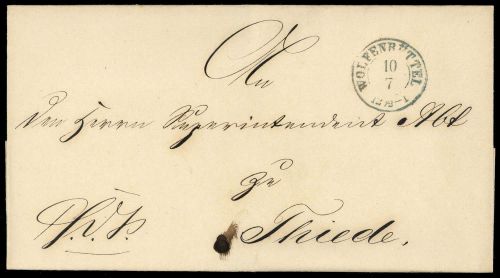 An
WOLFENBÜTTEL
10
7
den Herrn Superintendent Abt
zu
Thiede.